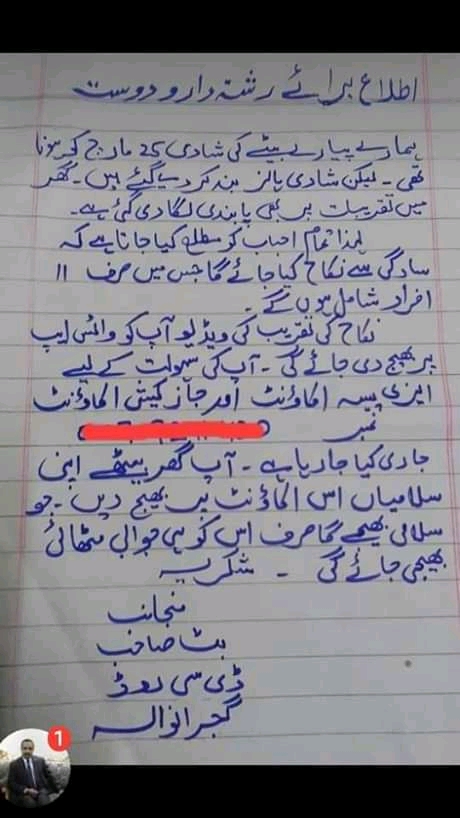 اطلاع برائے رشتہ دار و دوست
ہمارے پیارے بیٹے کی شادی 25 مارچ کو ہونا
تھی۔ لیکن شادی ہالز بند کر دیے گئے ہیں۔ گھر
میں تقریبات پر بھی پابندی لگا دی گئی ہے۔
لہذا تمام احباب کو مطلع کیا جاتا ہے کہ
سادگی سے نکاح کیا جائے گا جس میں صرف 11
افراد شامل ہوں گے۔
نکاح کی تقریب کی ویڈیو آپ کو واٹس ایپ
پر بھیج دی جائے گی۔ آپ کی سہولت کے لیے
ایزی پیسہ اکاؤنٹ اور جاز کیش اکاؤنٹ
نمبر
جاری کیا جا رہا ہے۔ آپ گھر بیٹھے اپنی
سلامیاں اس اکاؤنٹ پر بھیج دیں۔ جو
سلامی بھیجے گا صرف اس کو ہی جوابی مٹھائی
بھیجی جائے گی۔ شکریہ
منجانب
بٹ صاحب
ڈی سی روڈ
گجرانوالہ
1